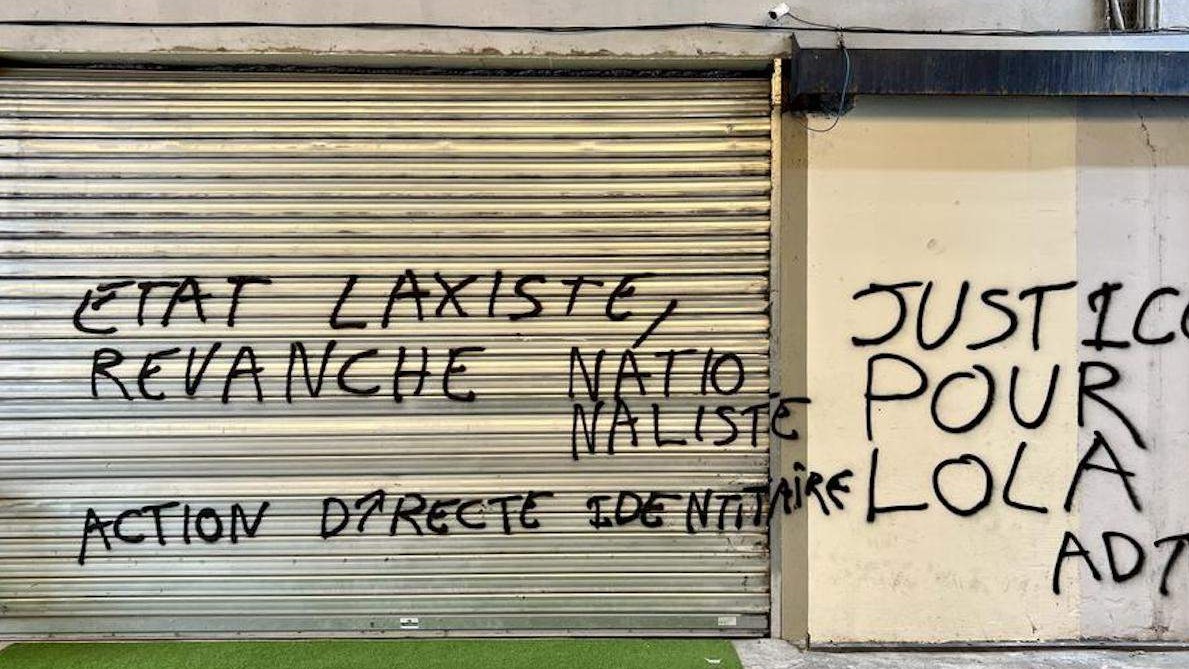 ETAT LAXISTE,
REVANCHE NATIO
NALISTE
ACTION DIRECTE IDENTITAIRE
JUSTICE
POUR
LOLA
ADT